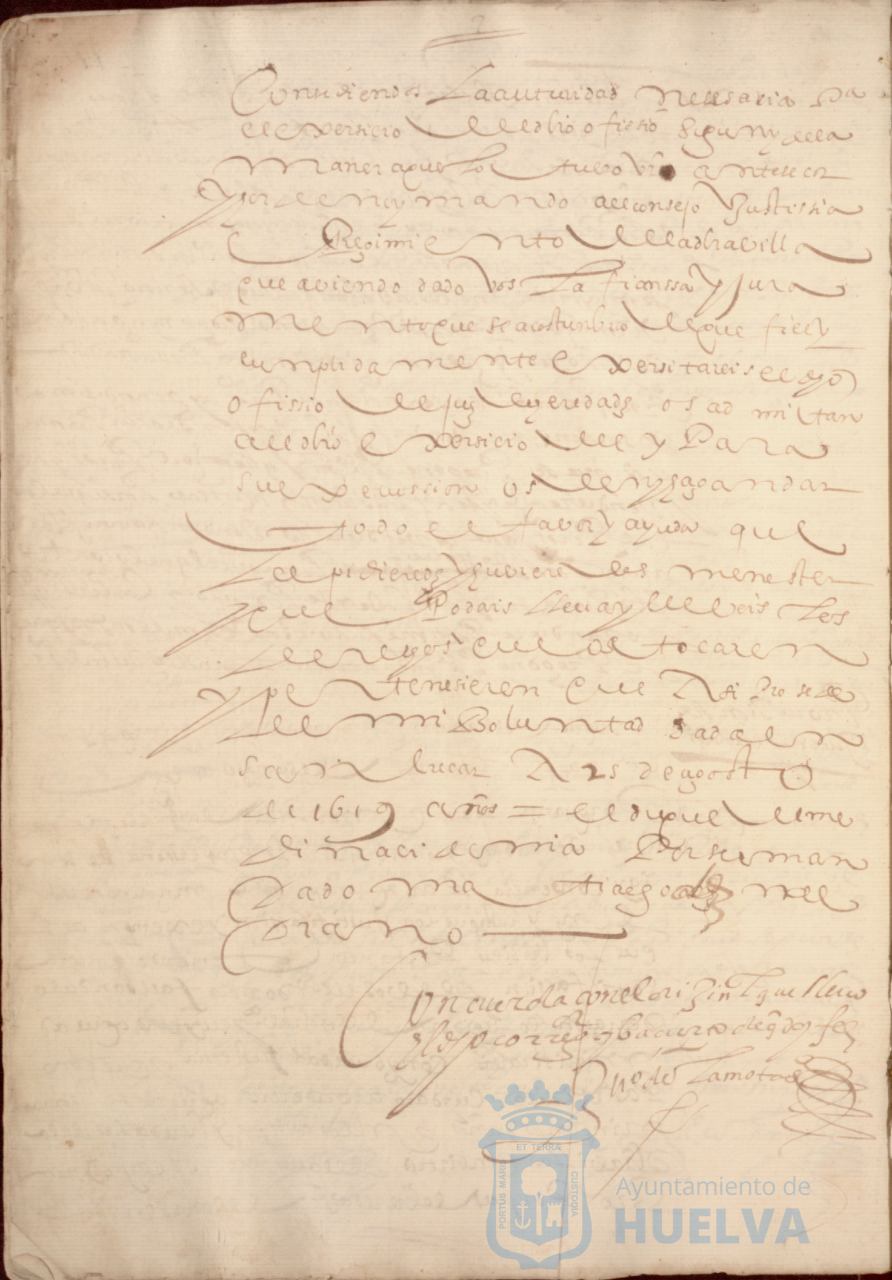 Consediendos La auturidad nesesaria Pa
el exersicio del dho ofissio Segun y de la
manera que Lo tuvo vro antesesor
y por ende mando al consejo Justissia
e Regimiento de la dha villa
que aviendo dado vos La fianssa y jura
mento que se acostunbra de que fiel y
cunplidamente exersitareis el dho
ofissio de juez de eredades os admitan
al dho exersicio del y Para
su execussion os den y hagan dar
todo el favor y ayuda que
Le pidieredes y hubieredes menester
y que Podais llevar y lleveis Los
derechos que al tocaren
y pertenesieren que Asi Prosede
de mi Boluntad dada en
san lucar A 25 de agosto
de 1619 años = el duque de me
dina cidonia Por su man
dado ma tia gomez nel
brano
Concuerda con el original que llevo
el dho y ba cierto de q doy fee
de la mota
PORTUS MARIS
ET TERRAE
CUSTODIA
Ayuntamiento de
HUELVA